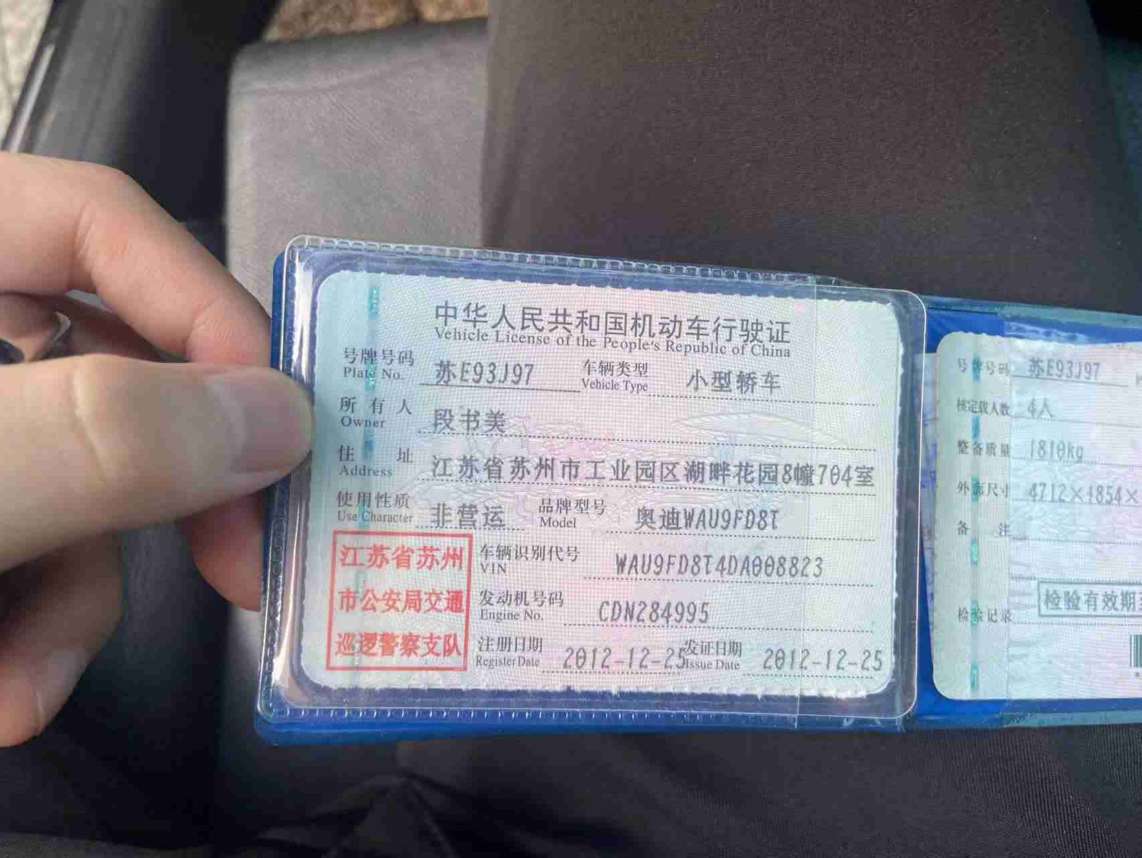 中华人民共和国机动车行驶证
Vehicle License of the People's Republic of China
号牌号码 苏E93J97 车辆类型 小型轿车
Plate No. Vehicle Type
所有人 段书美
Owner
住址 江苏省苏州市工业园区湖畔花园8幢704室
Address
使用性质 非营运 品牌型号 奥迪WAU9FD8T
Use Character Model
江苏省苏州
市公安局交通
巡逻警察支队
车辆识别代号 WAU9FD8T4DA008823
VIN
发动机号码 CDN284995
Engine No.
注册日期 2012-12-25 发证日期 2012-12-25
Register Date Issue Date
号牌号码 苏E93J97
核定载人数 4人
整备质量 1810kg
外廓尺寸 4712×1854×
备注
检验记录 检验有效期